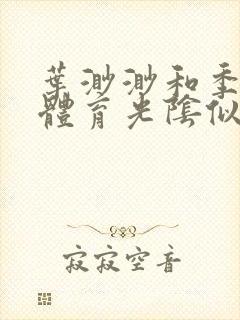 葉渺渺和季
體育光陰似
寂寂空音